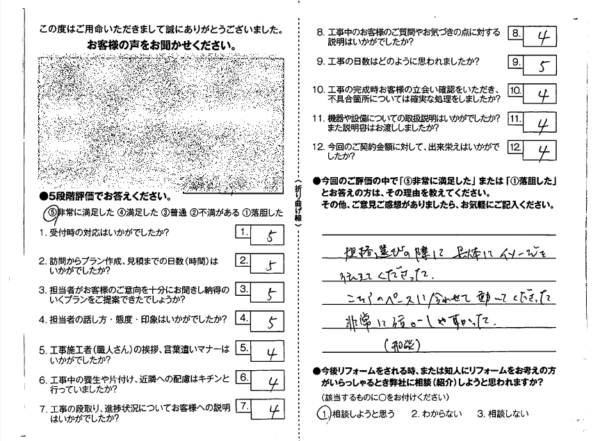 この度はご用命いただきまして誠にありがとうございました。
お客様の声をお聞かせください。
●5段階評価でお答えください。
⑤非常に満足した ④満足した ③普通 ②不満がある ①落胆した
1. 受付時の対応はいかがでしたか?
1. 5
2. 訪問からプラン作成、見積までの日数(時間)は
いかがでしたか?
2. 5
3. 担当者がお客様のご意向を十分にお聞きし納得の
いくプランをご提案できたでしょうか?
3. 5
4. 担当者の話し方・態度・印象はいかがでしたか?
4. 5
5. 工事施工者(職人さん)の挨拶、言葉遣いマナーは
いかがでしたか?
5. 4
6. 工事中の養生や片付け、近隣への配慮はキチンと
行っていましたか?
6. 4
7. 工事の段取り、進捗状況についてお客様への説明
はいかがでしたか?
7. 4
(折り曲げ線)
8. 工事中のお客様のご質問やお気づきの点に対する
説明はいかがでしたか?
8. 4
9. 工事の日数はどのように思われましたか?
9. 5
10. 工事の完成時お客様の立会い確認をいただき、
不具合箇所については確実な処理をしましたか?
10. 4
11. 機器や設備についての取扱説明はいかがでしたか?
また説明書はお渡ししましたか?
11. 4
12. 今回のご契約金額に対して、出来栄えはいかがで
したか?
12. 4
●今回のご評価の中で「⑤非常に満足した」または「①落胆した」
とお答えの方は、その理由を教えてください。
その他、ご意見ご感想がありましたら、お気軽にご記入ください。
選びの際に 具体にイメージを
伝えてくださった。
こちらのペースに合わせて 動いてくださった
非常に やすかった。
●今後リフォームをされる時、または知人にリフォームをお考えの方
がいらっしゃるとき弊社に相談(紹介)しようと思われますか?
(該当するものに○をお付けください)
1. 相談しようと思う 2. わからない 3. 相談しない